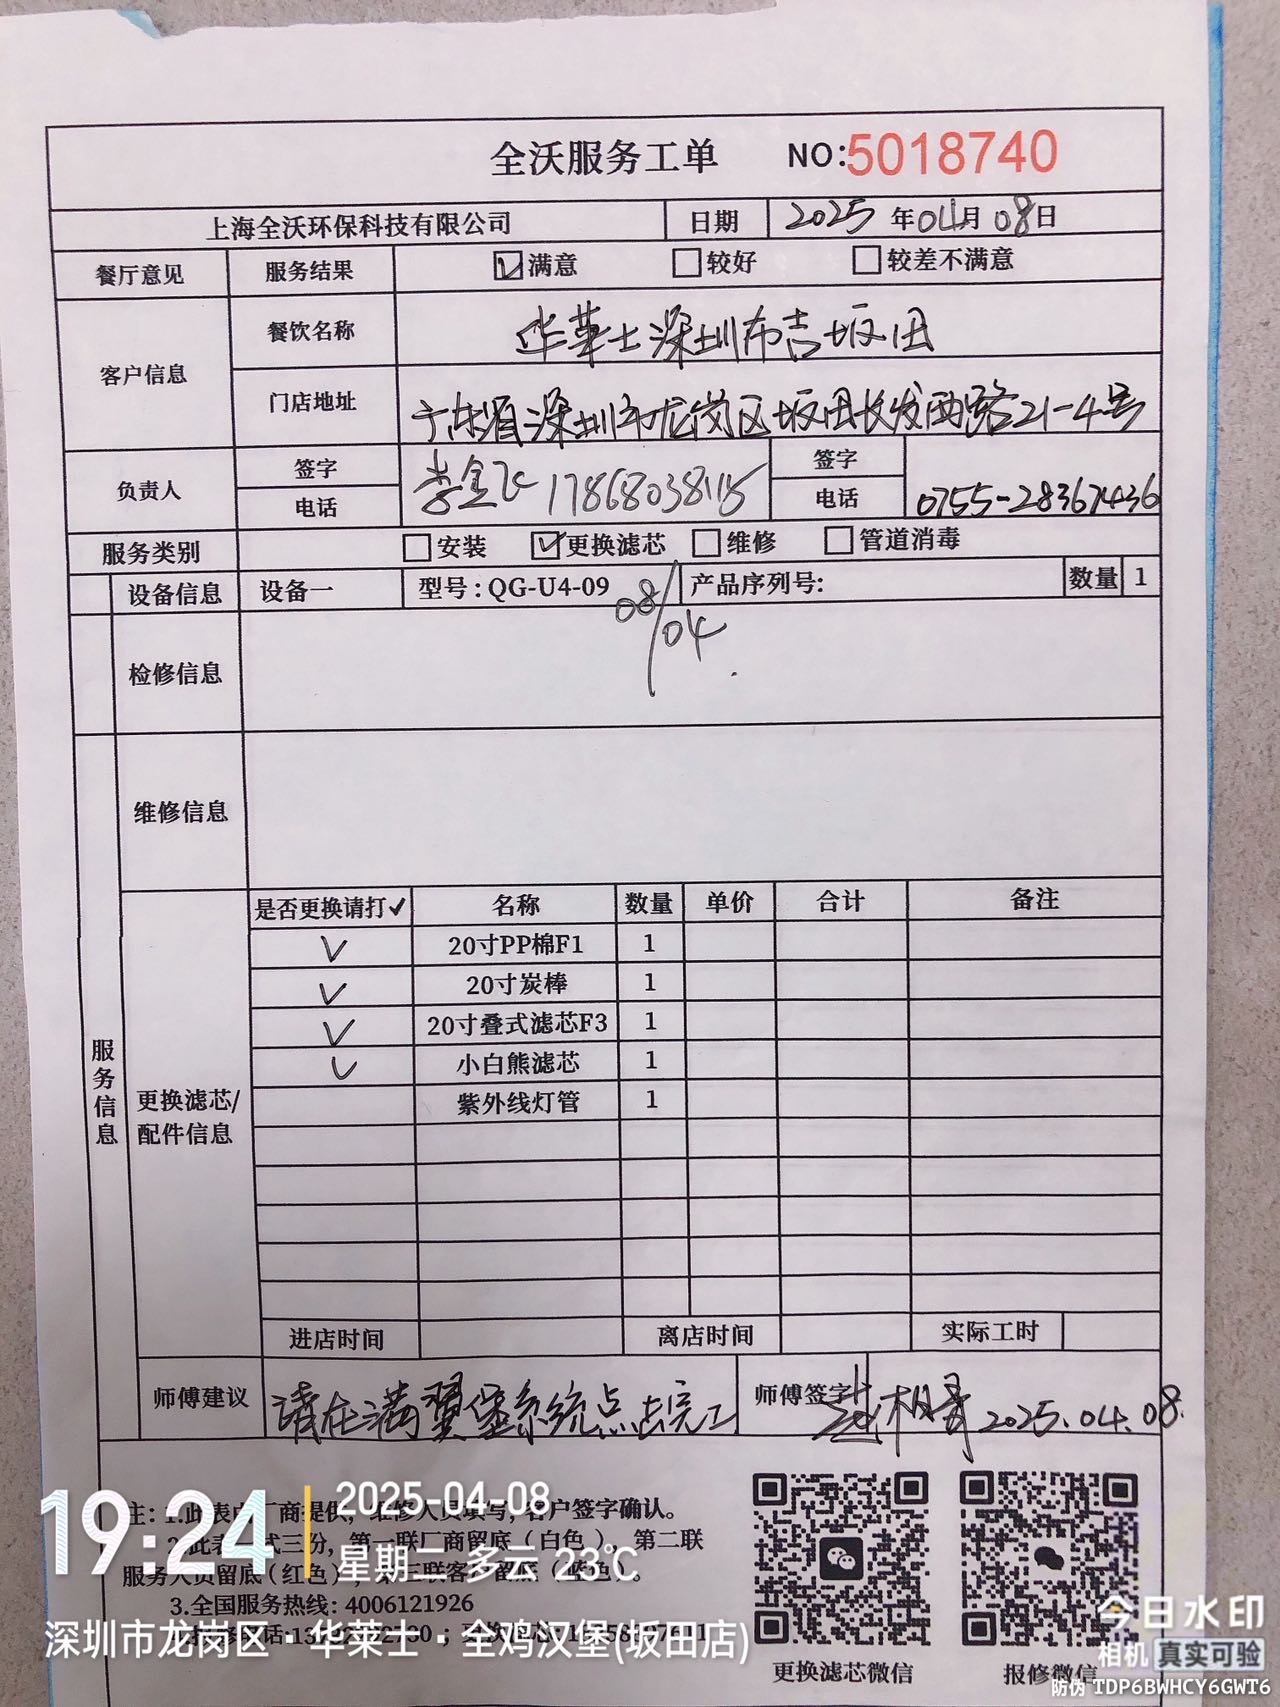 全沃服务工单 NO:5018740
上海全沃环保科技有限公司 日期 2025年04月08日
餐厅意见 服务结果 ☑满意 □较好 □较差不满意
客户信息 餐饮名称 华莱士深圳布吉坂田
门店地址 广东省深圳市龙岗区坂田长发西路21-4号
负责人 签字 签字
电话 电话 0755-28367436
服务类别 □安装 ☑更换滤芯 □维修 □管道消毒
设备信息 设备一 型号:QG-U4-09 产品序列号: 数量 1
08/04
检修信息
维修信息
服务信息
更换滤芯/
配件信息
是否更换请打✓ 名称 数量 单价 合计 备注
✓ 20寸PP棉F1 1
✓ 20寸炭棒 1
✓ 20寸叠式滤芯F3 1
✓ 小白熊滤芯 1
紫外线灯管 1
进店时间 离店时间 实际工时
师傅建议 请在满翼堡系统点击完工 师傅签字 2025.04.08.
注: 1.此表由厂商提供, 维修人员填写, 客户签字确认。
2.此表一式三份, 第一联厂商留底(白色), 第二联
服务人员留底(红色), 第三联客户留底(蓝色)。
3.全国服务热线: 4006121926
更换滤芯微信 报修微信
19:24
2025-04-08
星期二 多云 23℃
深圳市龙岗区·华莱士·全鸡汉堡(坂田店)
今日水印
相机 真实可验
防伪 TDP6BWHCY6GWT6